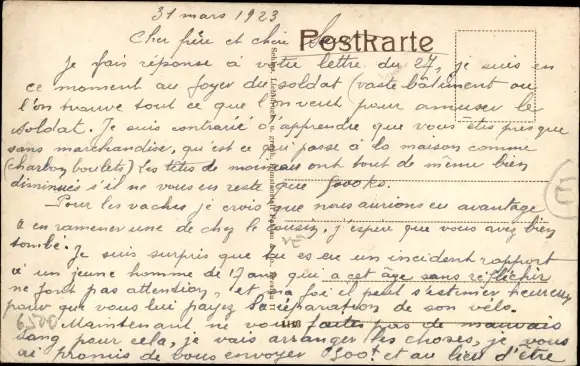 31 mars 1923
Cher frère et chère
Postkarte
Je fais réponse à votre lettre du 27, je suis en
ce moment au foyer du soldat (vaste bâtiment ou
l'on trouve tout ce que l'on veut pour amuser le
soldat. Je suis contrarié d'apprendre que vous êtes presque
sans marchandise, qu'est ce qui passe à la maison comme
(charbon boulets) les têtes de moineau ont tout de même bien
diminuées s'il ne vous en reste que
Pour les vaches je crois que nous aurions eu avantage
à en ramener une de chez le cousin, j'espère que vous avez bien
tombé. Je suis surpris que tu es eu un incident rapport
à un jeune homme de 17 ans qui a cet âge sans réfléchir
ne font pas attention, et ma foi il peut s'estimer heureux
pour que vous lui payez la réparation de son vélo.
6500 Maintenant ne vous faites pas de mauvais
sang pour cela, je vais arranger les choses, je vous
ai promis de vous envoyer et au lieu d'être
E